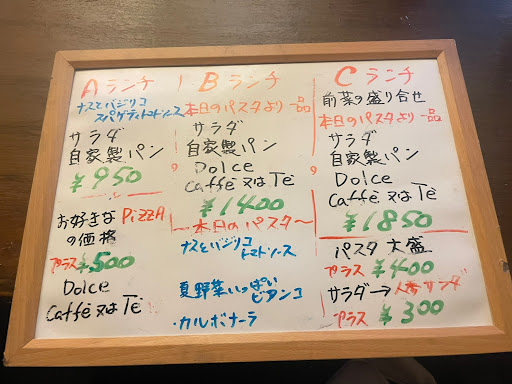 Aランチ
ナスとバジリコ
スパゲティトマトソース
サラダ
自家製パン
¥950
お好きなPizzA
の価格
プラス¥500
Dolce
Caffé 又は Té
Bランチ
本日のパスタより一品
サラダ
自家製パン
Dolce
Caffé 又は Té
¥1400
～本日のパスタ～
ナスとバジリコ
トマトソース
夏野菜いっぱい
ビアンコ
・カルボナーラ
Cランチ
前菜の盛り合せ
本日のパスタより一品
サラダ
自家製パン
Dolce
Caffé 又は Té
¥1850
パスタ 大盛
プラス ¥400
サラダ→人参サラダ
プラス ¥300